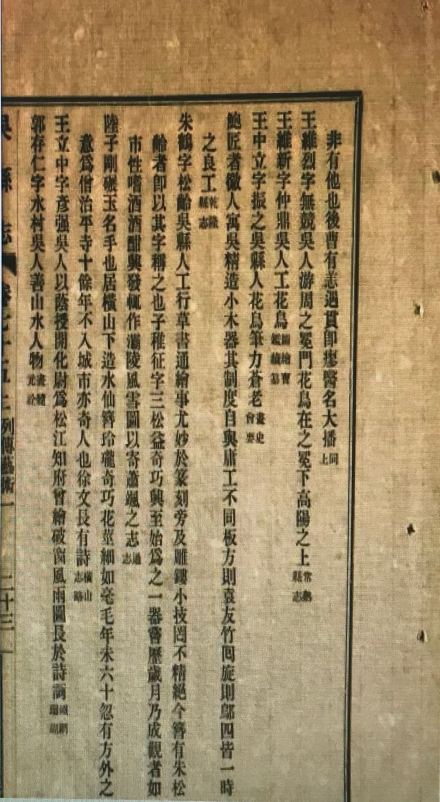 非有他也後曹有志遇貫即瘳醫名大播同上
王維烈字無競吳人游周之冕門花鳥在之冕下高陽之上常熟縣志
王維新字仲鼎吳人工花鳥圖繪寶鑑續纂
王中立字振之吳縣人花鳥筆力蒼老畫史會要
鮑匠者徽人寓吳精造小木器其制度自與庸工不同板方則袁友竹圓旋則鄔四皆一時
之良工乾隆縣志
朱鶴字松齡吳縣人工行草書通繪事尤妙於篆刻旁及雕鏤小技罔不精絕今簪有朱松
齡者即以其字稱之也子稚征字三松益奇巧興至始為之一器嘗歷歲月乃成觀者如
市性嗜酒酒酣興發輒作灞陵風雪圖以寄蕭颯之志通志
陸子剛碾玉名手也居橫山下造水仙簪玲瓏奇巧花莖細如毫毛年未六十忽有方外之
意為僧治平寺十餘年不入城市亦奇人也徐文長有詩橫山志略
王立中字彥强吳人以蔭授開化尉為松江知府曾繪破窗風雨圖長於詩詞
郭存仁字水村吳人善山水人物
吳縣志 卷七十五上 列傳藝術一 二十三